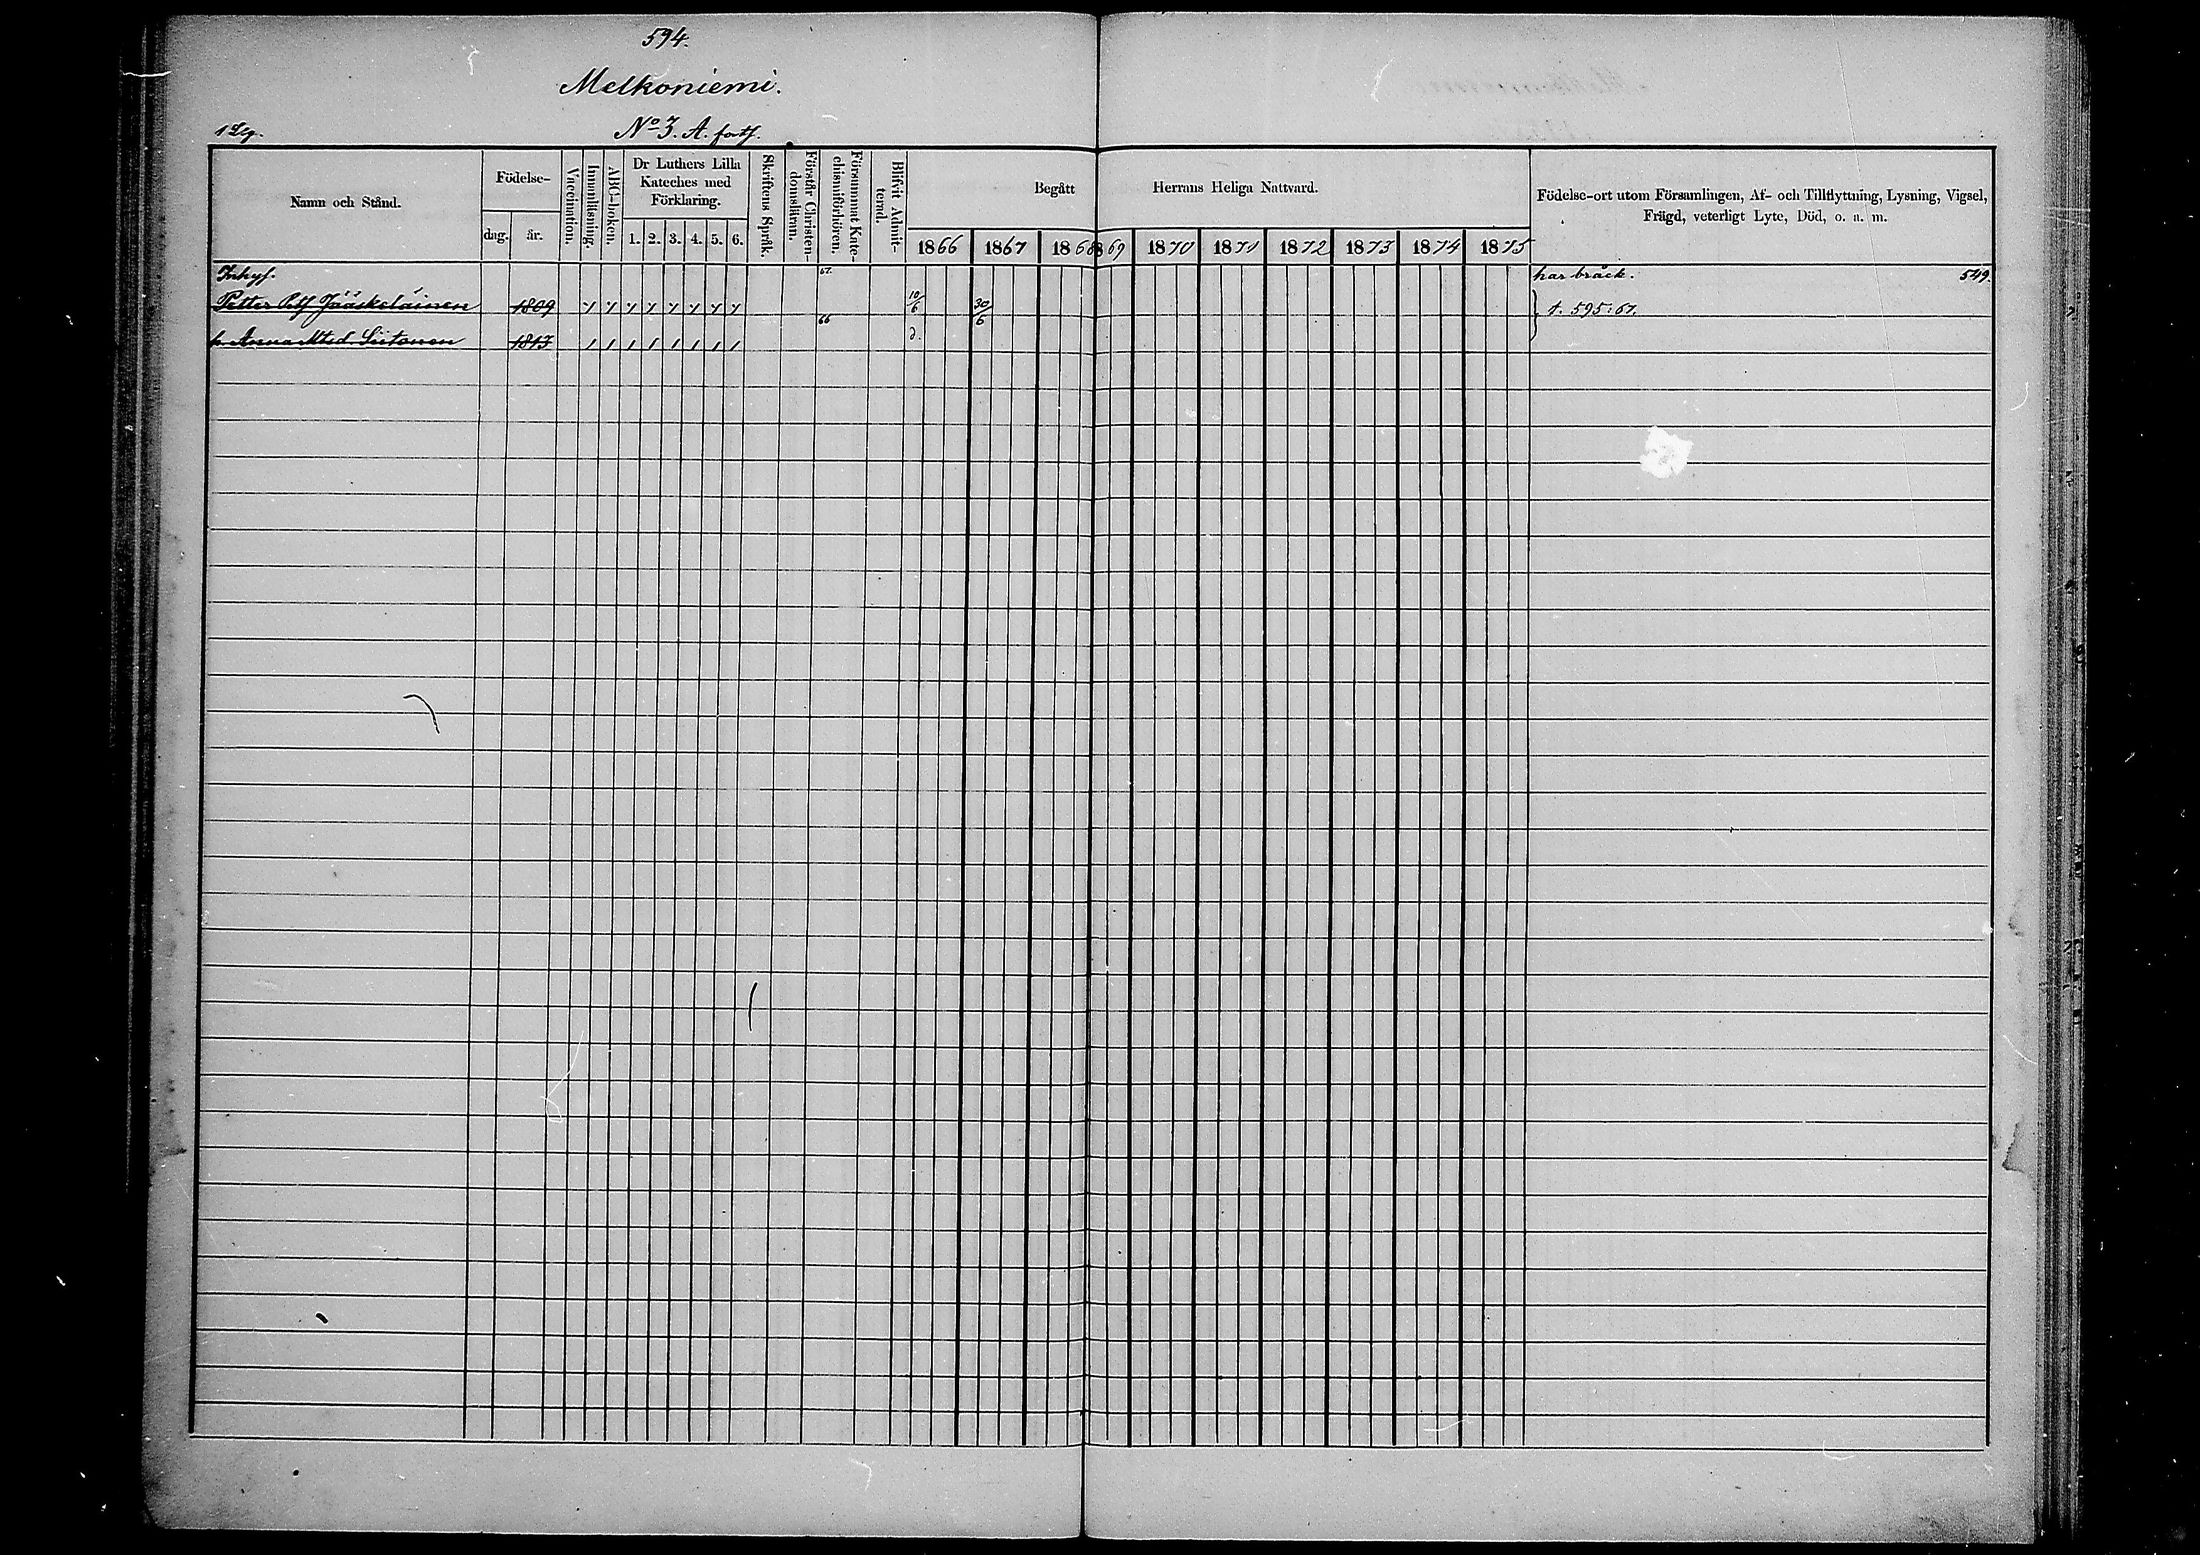 594.
Melkoniemi.
1 Lg.
No 3. A. forts.
Namn och Stånd.
Födelse-
dag.
år.
Vaccination.
Innanläsning.
ABC-boken.
Dr Luthers Lilla
Kateches med
Förklaring.
1. 2. 3. 4. 5. 6.
Skriftens Språk.
Förstår Christen-
domsläran.
Försummat Kate-
chismiförhören.
Blifvit Admit-
terad.
Begått Herrans Heliga Nattvard.
1866 1867 1868 1869 1870 1871 1872 1873 1874 1875
Födelse-ort utom Församlingen, Af- och Tillflyttning, Lysning, Vigsel,
Frägd, veterligt Lyte, Död, o. a. m.
Inhys. 67. har bråck. 549.
Petter Jääskeläinen 1809 10/6 30/6 t. 595: 67.
66
h. Anna Siitonen 1813 d.